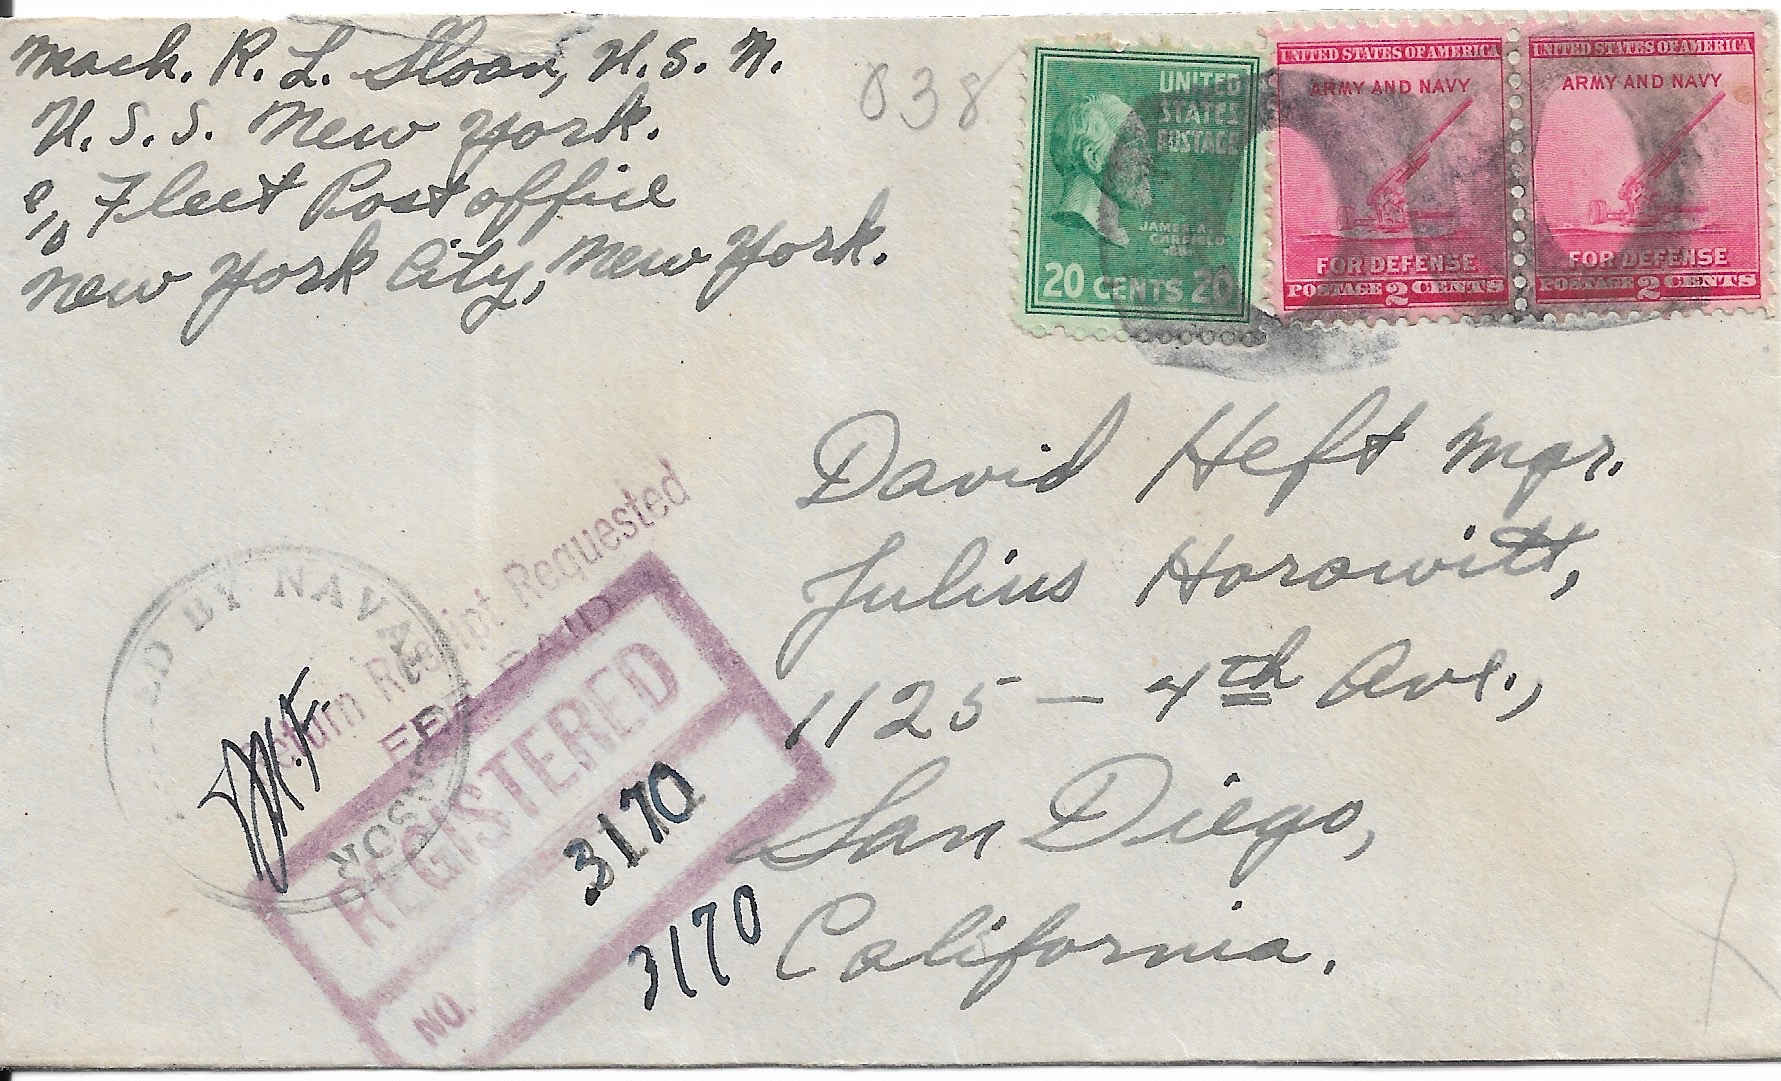 Mach. R. L. Sloan, U.S.N.
U.S.S. New York.
c/o Fleet Post office
New York City, New York.
038
UNITED
STATES
POSTAGE
JAMES A.
GARFIELD
20 CENTS 20
UNITED STATES OF AMERICA
ARMY AND NAVY
FOR DEFENSE
POSTAGE 2 CENTS
UNITED STATES OF AMERICA
ARMY AND NAVY
FOR DEFENSE
POSTAGE 2 CENTS
David Heft Mgr.
Julius Horowitt,
1125 - 4th Ave.,
San Diego,
California.
Return Receipt Requested
FEE PAID
ED BY NAVAL
REGISTERED
3170
3170
NO.